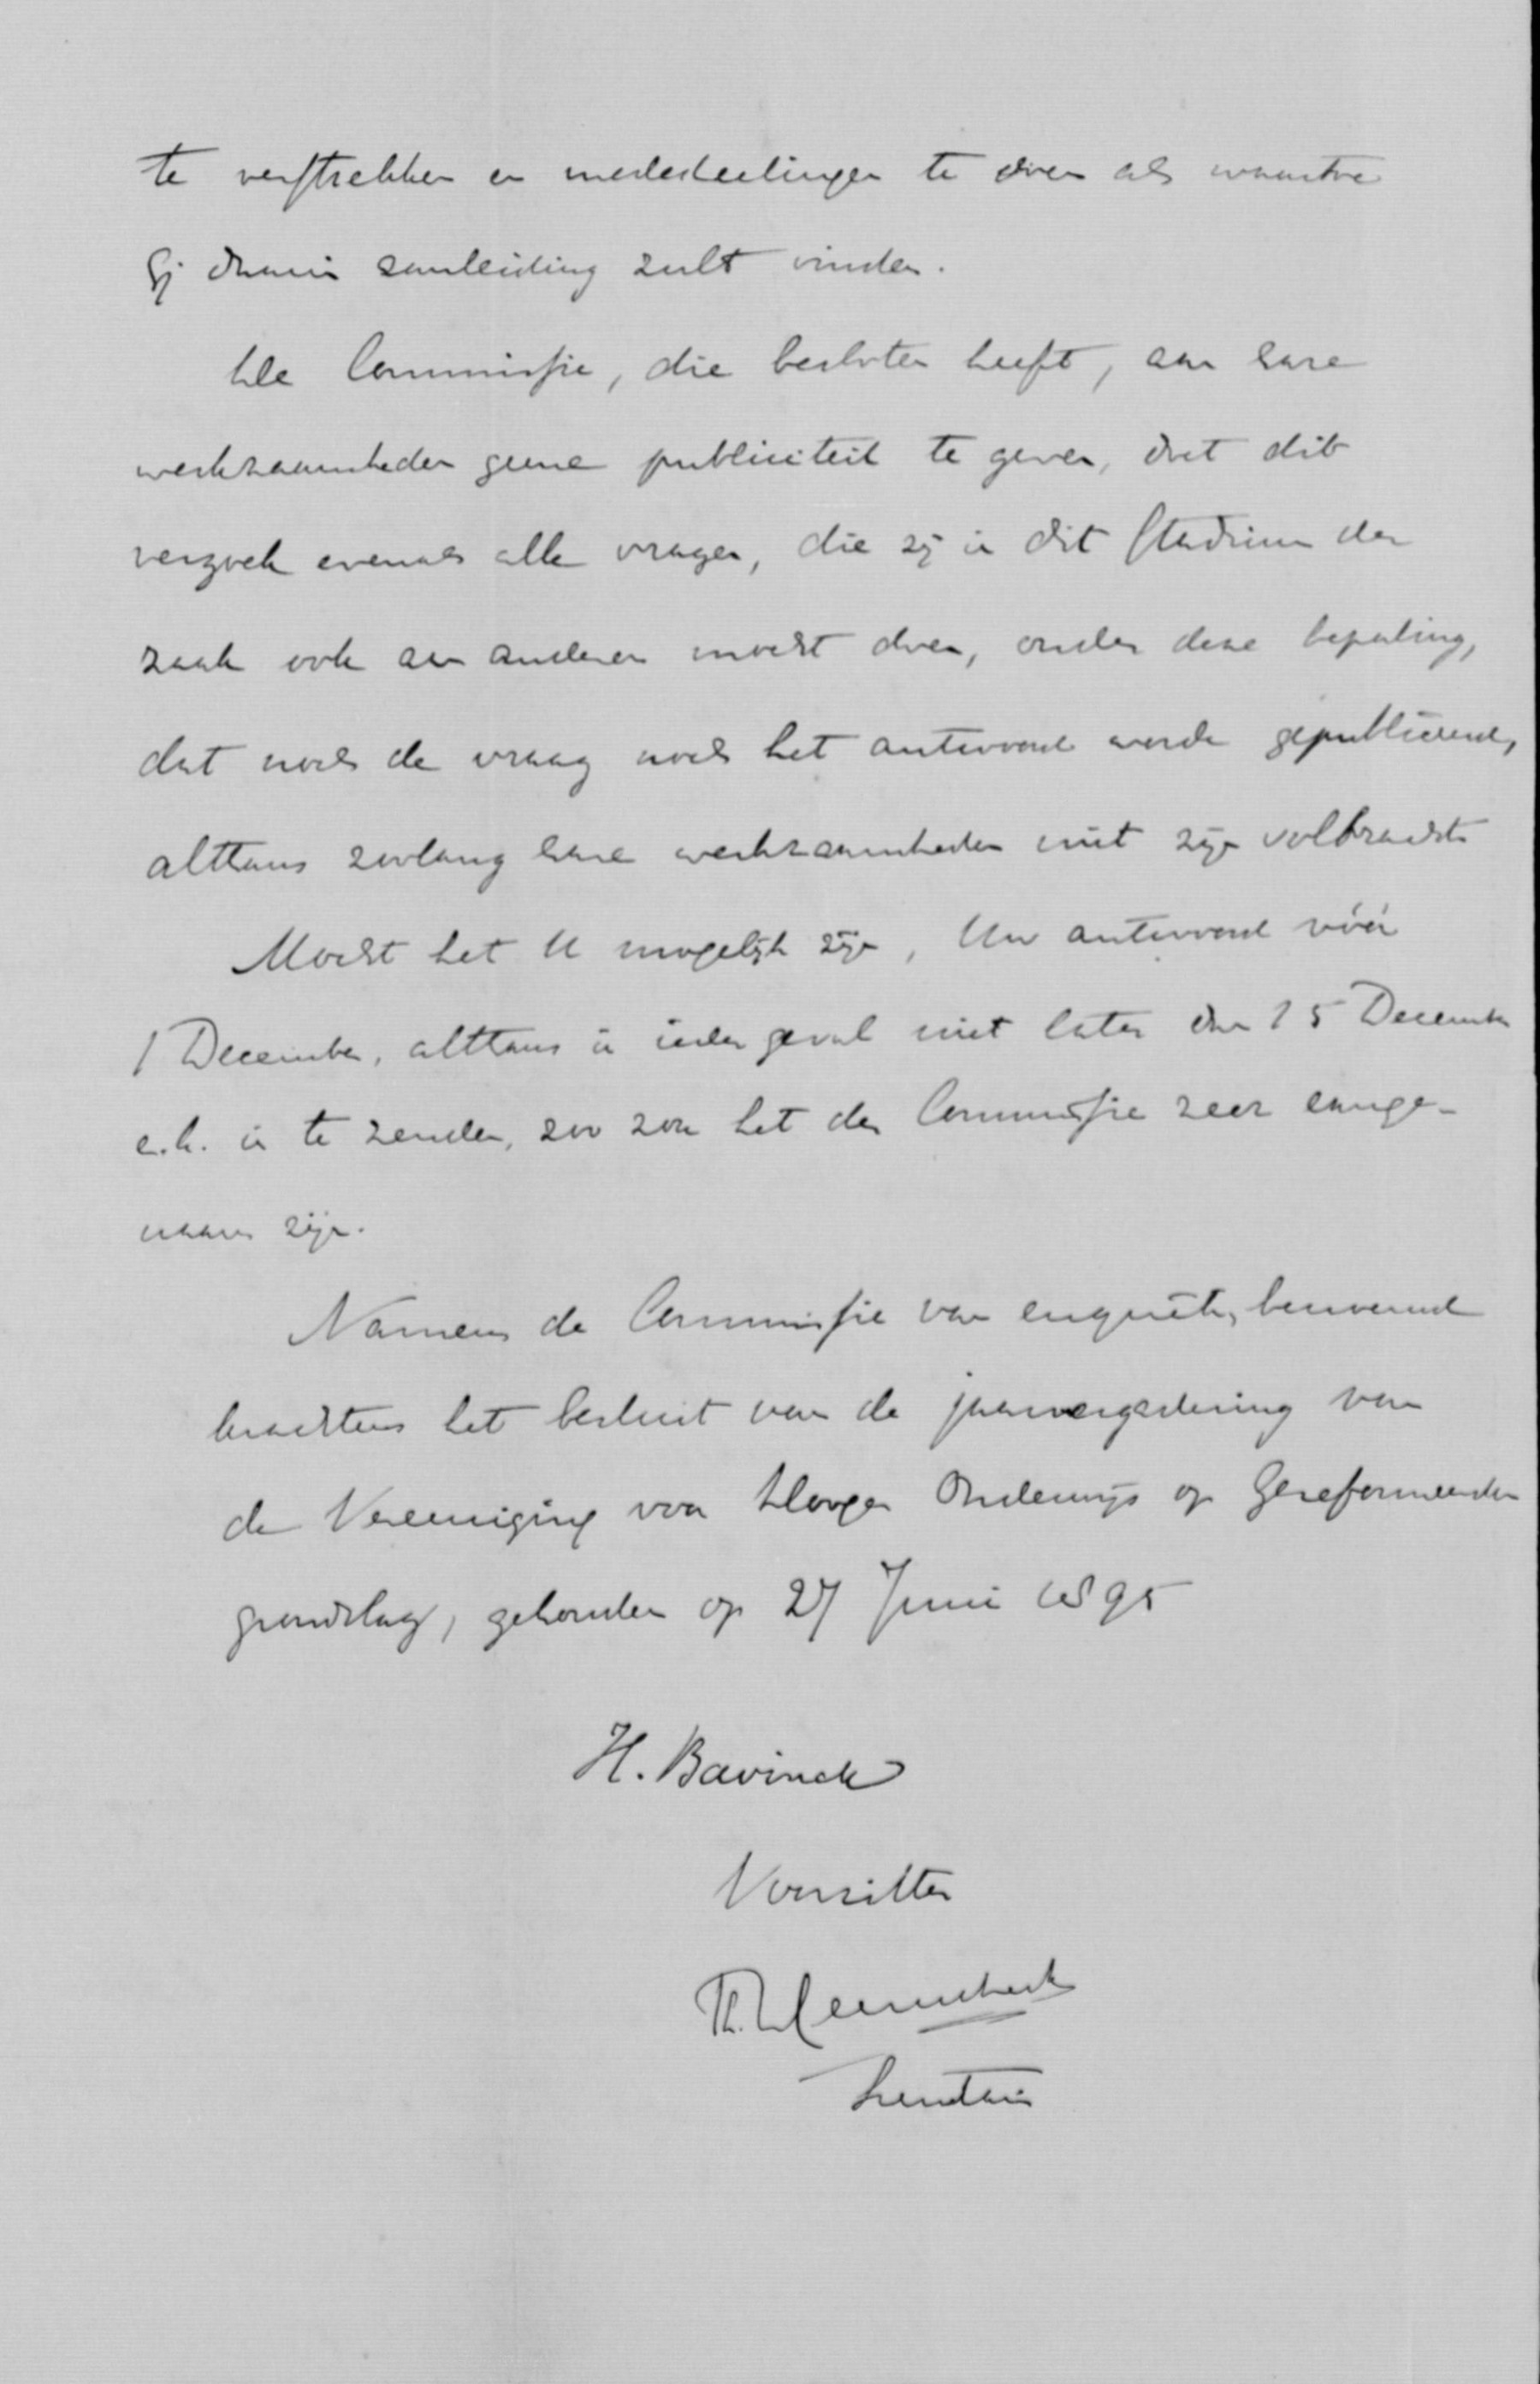 te verstrekken en mededeelingen te doen als waartoe
gij daarin aanleiding zult vinden.
De Commissie, die besloten heeft, aan hare
werkzaamheden geene publiciteit te geven, doet dit
verzoek evenals alle vragen, die zij in dit stadium der
zaak ook aan anderen mocht doen, onder deze bepaling,
dat noch de vraag noch het antwoord worde gepubliceerd,
althans zoolang hare werkzaamheden niet zijn volbracht.
Mocht het U mogelijk zijn, Uw antwoord vóór
1 December, althans in ieder geval niet later dan 15 December
e.k. in te zenden, zoo zou het der Commissie zeer aange-
naam zijn.
Namens de Commissie van enquête, benoemd
krachtens het besluit van de jaarvergadering van
de Vereeniging voor Hooger Onderwijs op Gereformeerden
grondslag, gehouden op 27 Juni 1895
H. Bavinck
Voorzitter
Th. Heemskerk
Secretaris